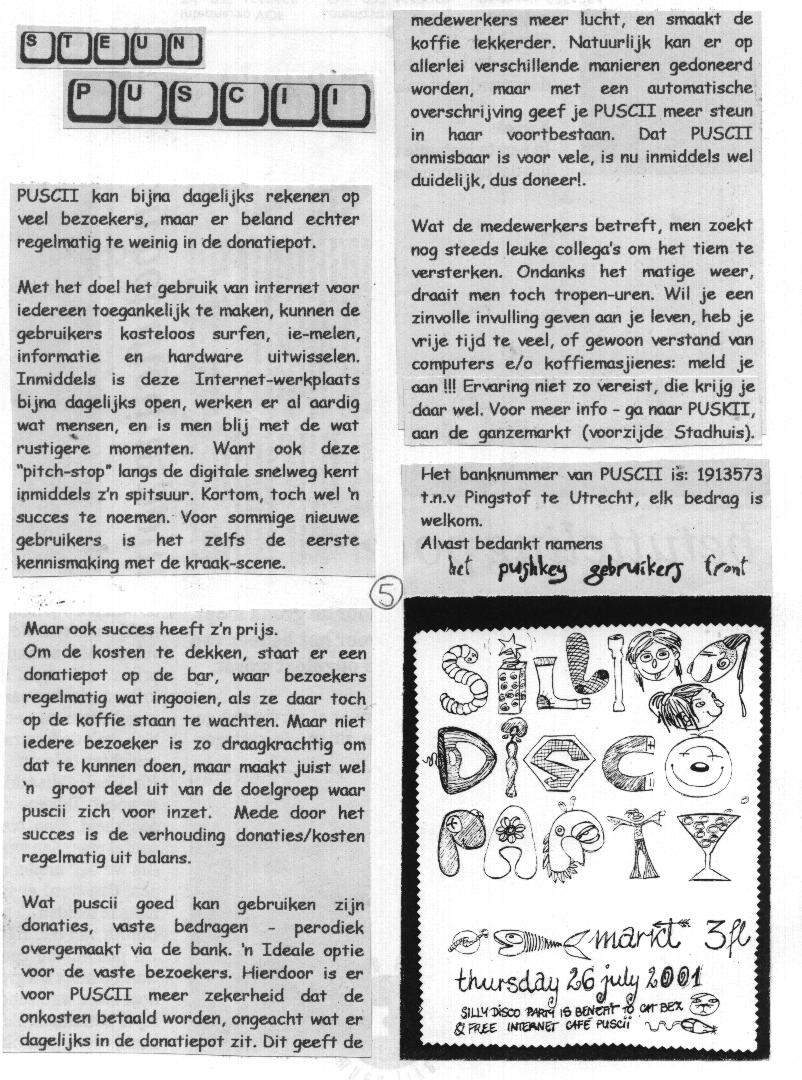 STEUN
PUSCII
PUSCII kan bijna dagelijks rekenen op
veel bezoekers, maar er beland echter
regelmatig te weinig in de donatiepot.
Met het doel het gebruik van internet voor
iedereen toegankelijk te maken, kunnen de
gebruikers kosteloos surfen, ie-melen,
informatie en hardware uitwisselen.
Inmiddels is deze Internet-werkplaats
bijna dagelijks open, werken er al aardig
wat mensen, en is men blij met de wat
rustigere momenten. Want ook deze
"pitch-stop" langs de digitale snelweg kent
inmiddels z'n spitsuur. Kortom, toch wel 'n
succes te noemen. Voor sommige nieuwe
gebruikers is het zelfs de eerste
kennismaking met de kraak-scene.
Maar ook succes heeft z'n prijs.
Om de kosten te dekken, staat er een
donatiepot op de bar, waar bezoekers
regelmatig wat ingooien, als ze daar toch
op de koffie staan te wachten. Maar niet
iedere bezoeker is zo draagkrachtig om
dat te kunnen doen, maar maakt juist wel
'n groot deel uit van de doelgroep waar
puscii zich voor inzet. Mede door het
succes is de verhouding donaties/kosten
regelmatig uit balans.
Wat puscii goed kan gebruiken zijn
donaties, vaste bedragen - perodiek
overgemaakt via de bank. 'n Ideale optie
voor de vaste bezoekers. Hierdoor is er
voor PUSCII meer zekerheid dat de
onkosten betaald worden, ongeacht wat er
dagelijks in de donatiepot zit. Dit geeft de
medewerkers meer lucht, en smaakt de
koffie lekkerder. Natuurlijk kan er op
allerlei verschillende manieren gedoneerd
worden, maar met een automatische
overschrijving geef je PUSCII meer steun
in haar voortbestaan. Dat PUSCII
onmisbaar is voor vele, is nu inmiddels wel
duidelijk, dus doneer!.
Wat de medewerkers betreft, men zoekt
nog steeds leuke collega's om het tiem te
versterken. Ondanks het matige weer,
draait men toch tropen-uren. Wil je een
zinvolle invulling geven aan je leven, heb je
vrije tijd te veel, of gewoon verstand van
computers e/o koffiemasjienes: meld je
aan !!! Ervaring niet zo vereist, die krijg je
daar wel. Voor meer info - ga naar PUSKII,
aan de ganzemarkt (voorzijde Stadhuis).
Het banknummer van PUSCII is: 1913573
t.n.v Pingstof te Utrecht, elk bedrag is
welkom.
Alvast bedankt namens
het pushkey gebruikers front
5
SILLY
DISCO
PARTY
markt 3fl
thursday 26 july 2001
SILLY DISCO PARTY IS BENEFIT TO CAT BEX
& FREE INTERNET CAFÉ PUSCII